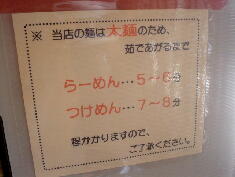 ※ 当店の麺は太麺のため、
茹であがるまで
らーめん…5～6分
つけめん…7～8分
程かかりますので、
ご了承ください。